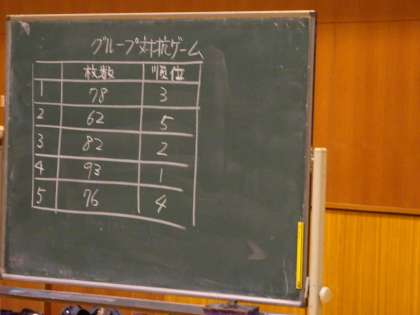 グループ対抗ゲーム
枚数 順位
1 78 3
2 62 5
3 82 2
4 93 1
5 76 4